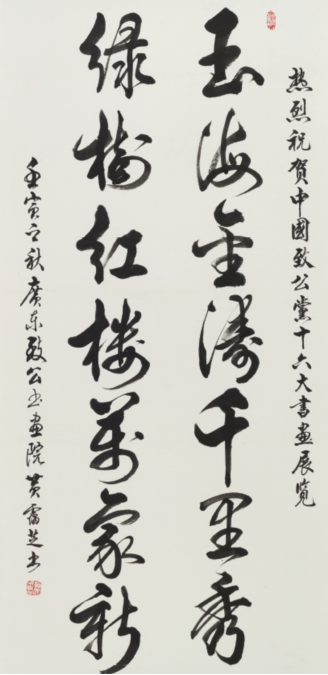 热烈祝贺中國致公黨十六大書畫展览
玉海金涛千里秀
绿樹红楼萬象新
壬寅之秋廣东致公书画院黄霭芝书